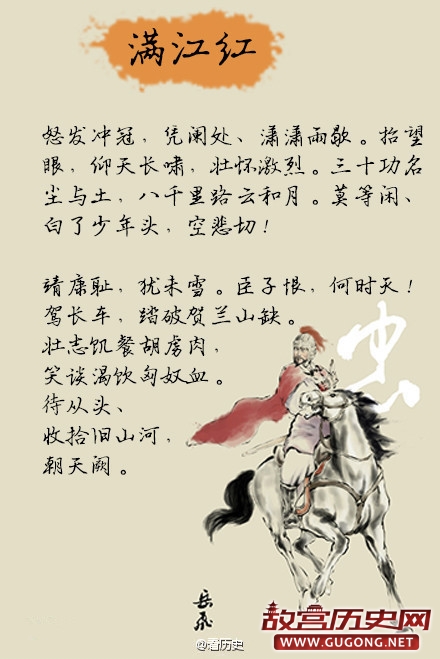 满江红
怒发冲冠，凭阑处、潇潇雨歇。抬望
眼，仰天长啸，壮怀激烈。三十功名
尘与土，八千里路云和月。莫等闲、
白了少年头，空悲切！
靖康耻，犹未雪。臣子恨，何时灭！
驾长车，踏破贺兰山缺。
壮志饥餐胡虏肉，
笑谈渴饮匈奴血。
待从头、
收拾旧山河，
朝天阙。
忠
岳飞
@看历史
故宫历史网
WWW.GUGONG.NET